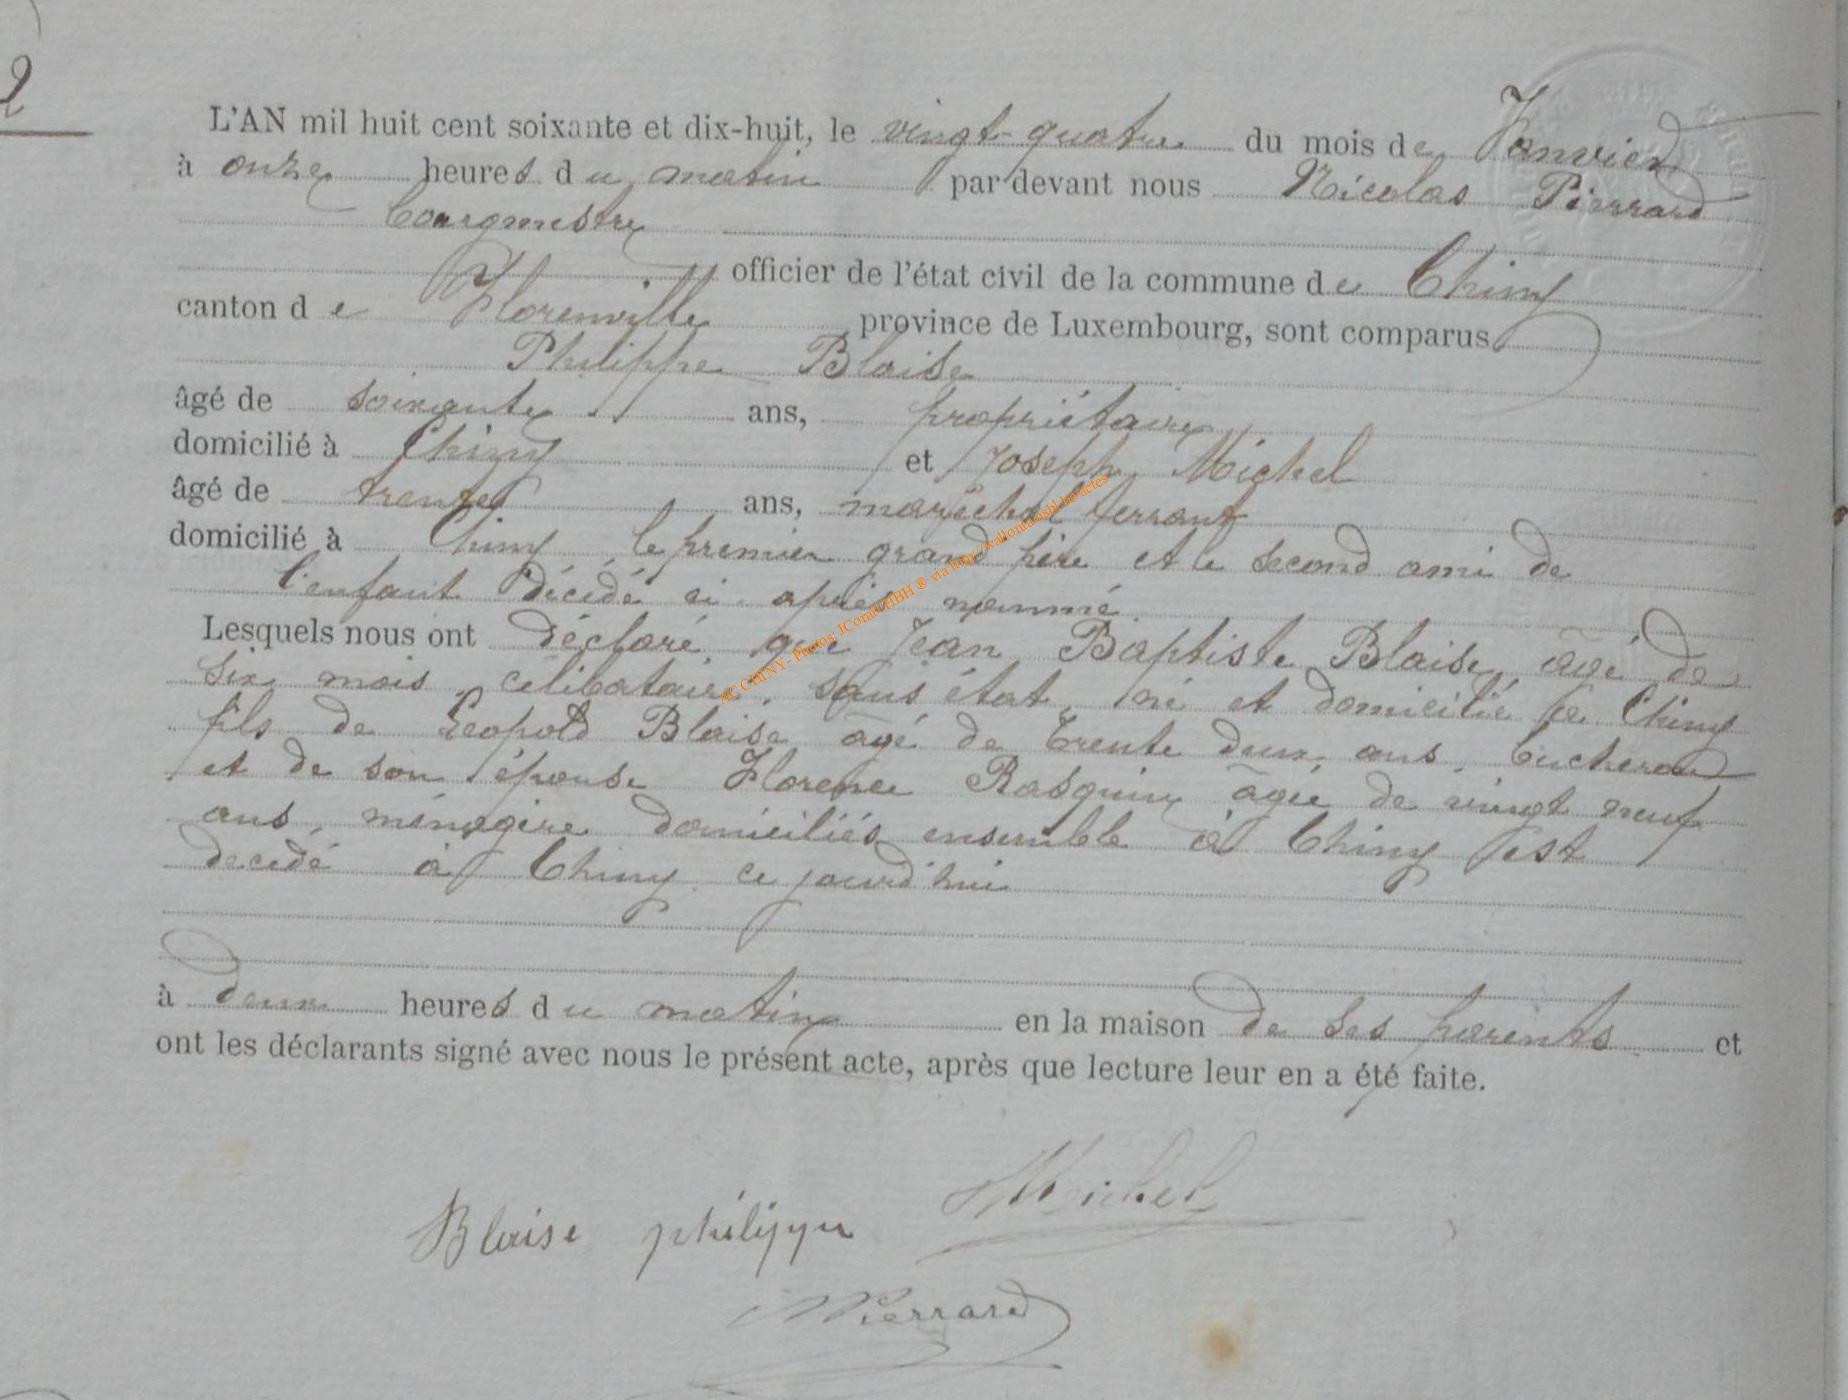 2
L'AN mil huit cent soixante et dix-huit, le vingt-quatre du mois de Janvier
à onze heures du matin par devant nous Nicolas Pierrard
bourgmestre
officier de l'état civil de la commune de Chiny
canton de Florenville province de Luxembourg, sont comparus
Philippe Blaise
âgé de soixante ans, propriétaire
domicilié à Chiny et Joseph Michel
âgé de trente ans, maréchal ferrant
domicilié à Chiny le premier grand père et le second ami de
l'enfant décédé ci-après nommé
Lesquels nous ont déclaré que Jean Baptiste Blaise, âgé de
six mois, célibataire, sans état, né et domicilié à Chiny
fils de Léopold Blaise âgé de trente deux ans, bucheron
et de son épouse Florence Rasquin âgée de vingt neuf
ans, ménagère domiciliés ensemble à Chiny est
decedé à Chiny ce jourd'hui
à deux heures du matin en la maison de ses parents et
ont les déclarants signé avec nous le présent acte, après que lecture leur en a été faite.
Blaise philippe
JMichel
NPierrard
AC CHINY- Photos: JComitHBH ® via http://wallonica
asbl.be/actes